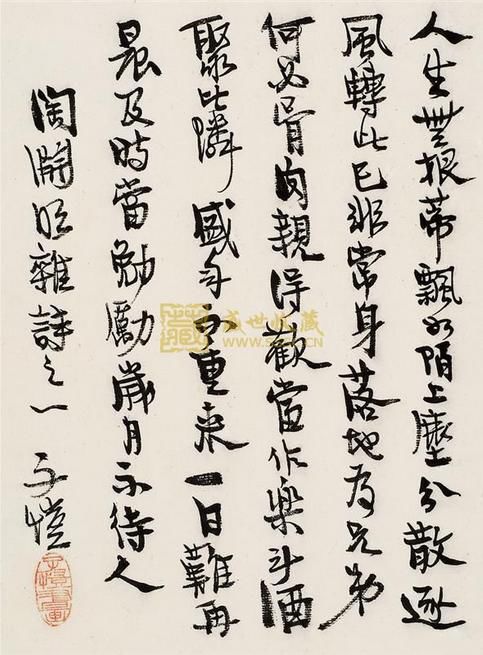 人生無根蒂飄如陌上塵分散逐
風轉此已非常身落地為兄弟
何必骨肉親得歡當作樂斗酒
聚比隣盛年不重來一日難再
晨及時當勉勵歲月不待人
陶淵明雜詩之一 子愷
盛世收藏